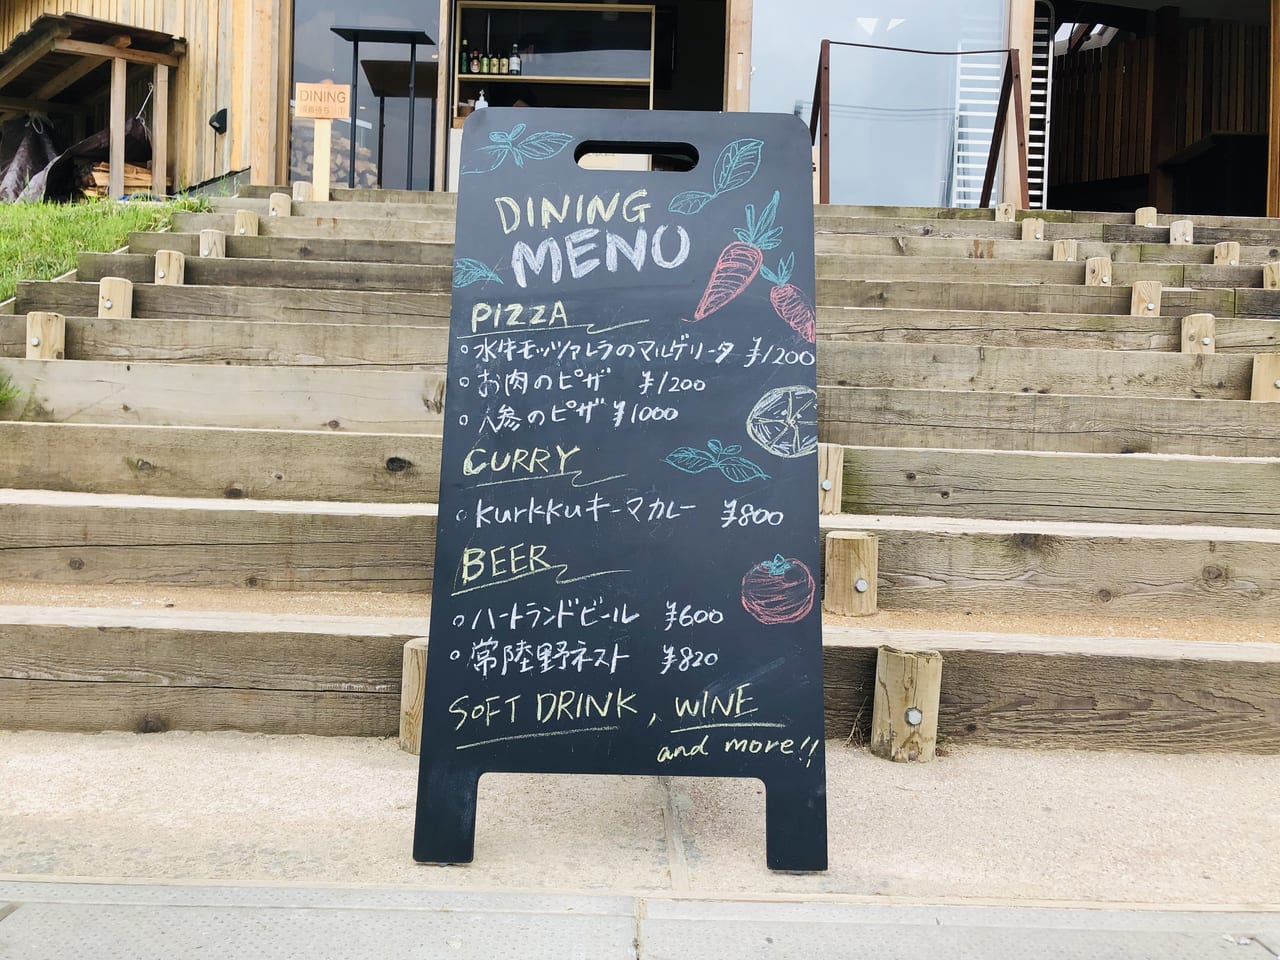 DINING
DINING
MENU
PIZZA
○水牛モッツァレラのマルゲリータ ¥1200
○お肉のピザ ¥1200
○人参のピザ ¥1000
CURRY
○kurkkuキーマカレー ¥800
BEER
○ハートランドビール ¥600
○常陸野ネスト ¥820
SOFT DRINK, WINE
and more!!